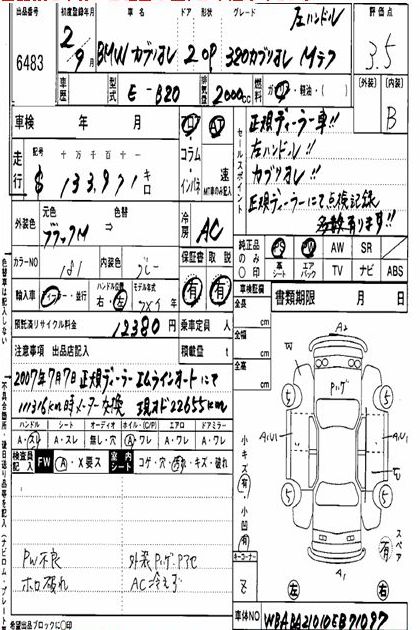 出品番号 初度登録年月 車名 ドア 形状 グレード 評価点
左ハンドル
6483 2年9月 BMW カブリオレ 2 OP 320カブリオレ Mテク 3.5
車歴 型式 E-B20 排気量 2000cc 燃料 ガソリン・軽油・( )
[外装] [内装]
B
車検 年 月
フロア AT
コラム・インパネ 速
MT車のみ記入
セールスポイント
正規ディーラー車!!
左ハンドル!!
カブリオレ!!
正規ディーラーにて点検記録
多数有ります!!
走行 記号 十万千百十一
$ 133,971 キロ
外装色 元色 色替
ブラックM ⇒
冷房 AC
カラーNO 181 内装色 グレー
保証書 取説
有 有
純正品のみ○印
PS PW AW SR
革シート エアバック TV ナビ ABS
輸入車 ディーラー・並行 ハンドル位置 右・左 モデル年式 年
車輌装備
書類期限 月 日
預託済リサイクル料金 12380円
乗車定員 人
積載量 t
全長 cm
全幅 cm
全高 cm
注意事項 出品店記入
2007年7月7日 正規ディーラー エムラインオートにて
111316km時メーター交換 現オド22655km
ハンドル シート オーディオ ホイル・(C/P) エアロ ドアミラー
A・スレ A・スレ 無し・穴 A・ワレ A・ワレ A・ワレ
検査員記入 FW A・X要ス 室内シート コゲ・穴・汚れ・キズ・破れ
PW不良 外装Pッグ、Pアセ
ホロ破れ AC冷えず
A2
Pッグ
5 5
5 5
A1
小キズ 有
小凹 有
スペア 有
キーコーナー
左 右
色替車は記入しない
希望出品ブロックに○印
車体NO WBABA210105B71097